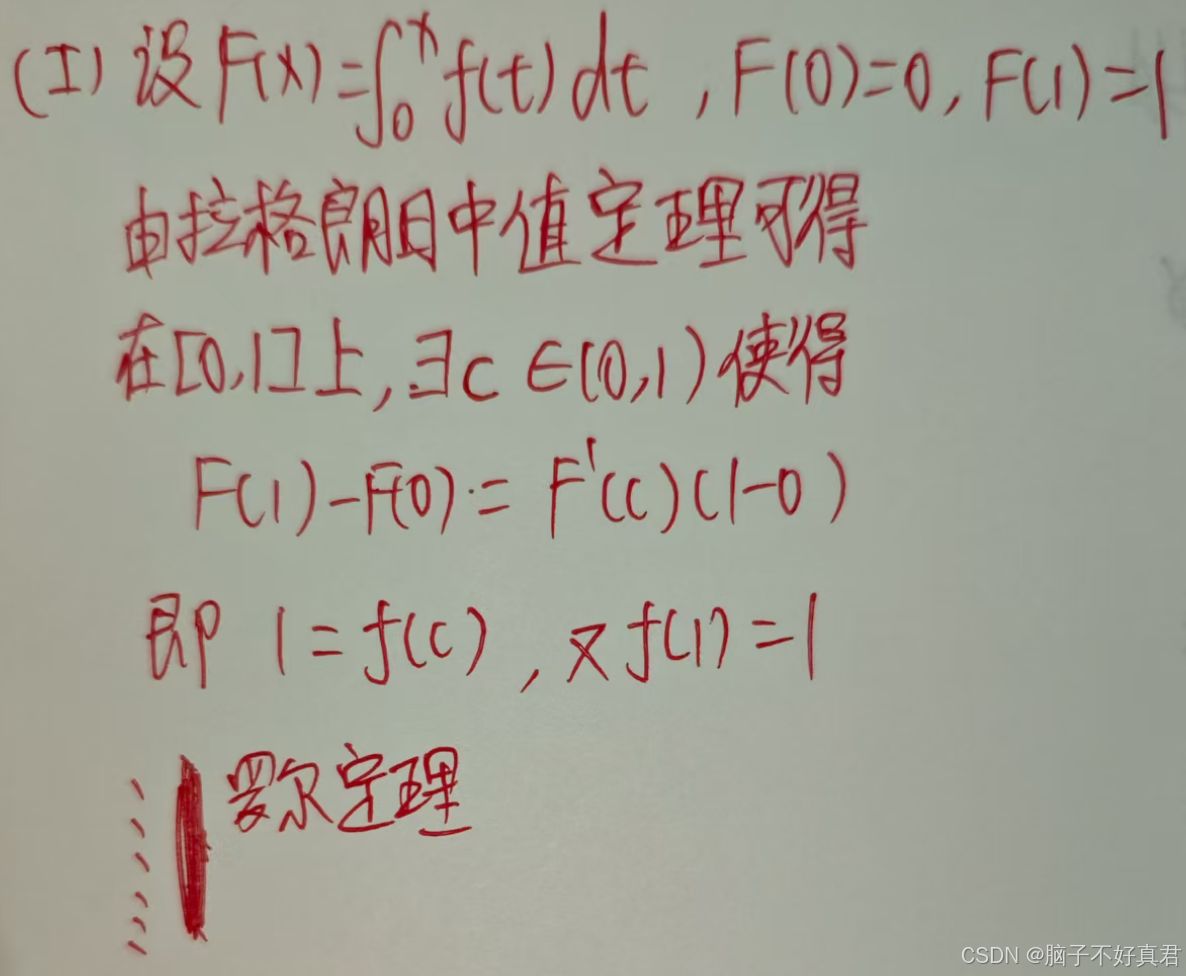 (I) 设F(x)=∫₀ˣf(t)dt,F(0)=0,F(1)=1
由拉格朗日中值定理可得
在[0,1]上,∃c∈(0,1)使得
F(1)-F(0)=F'(c)(1-0)
即 1=f(c),又f(1)=1
罗尔定理
CSDN @脑子不好真君